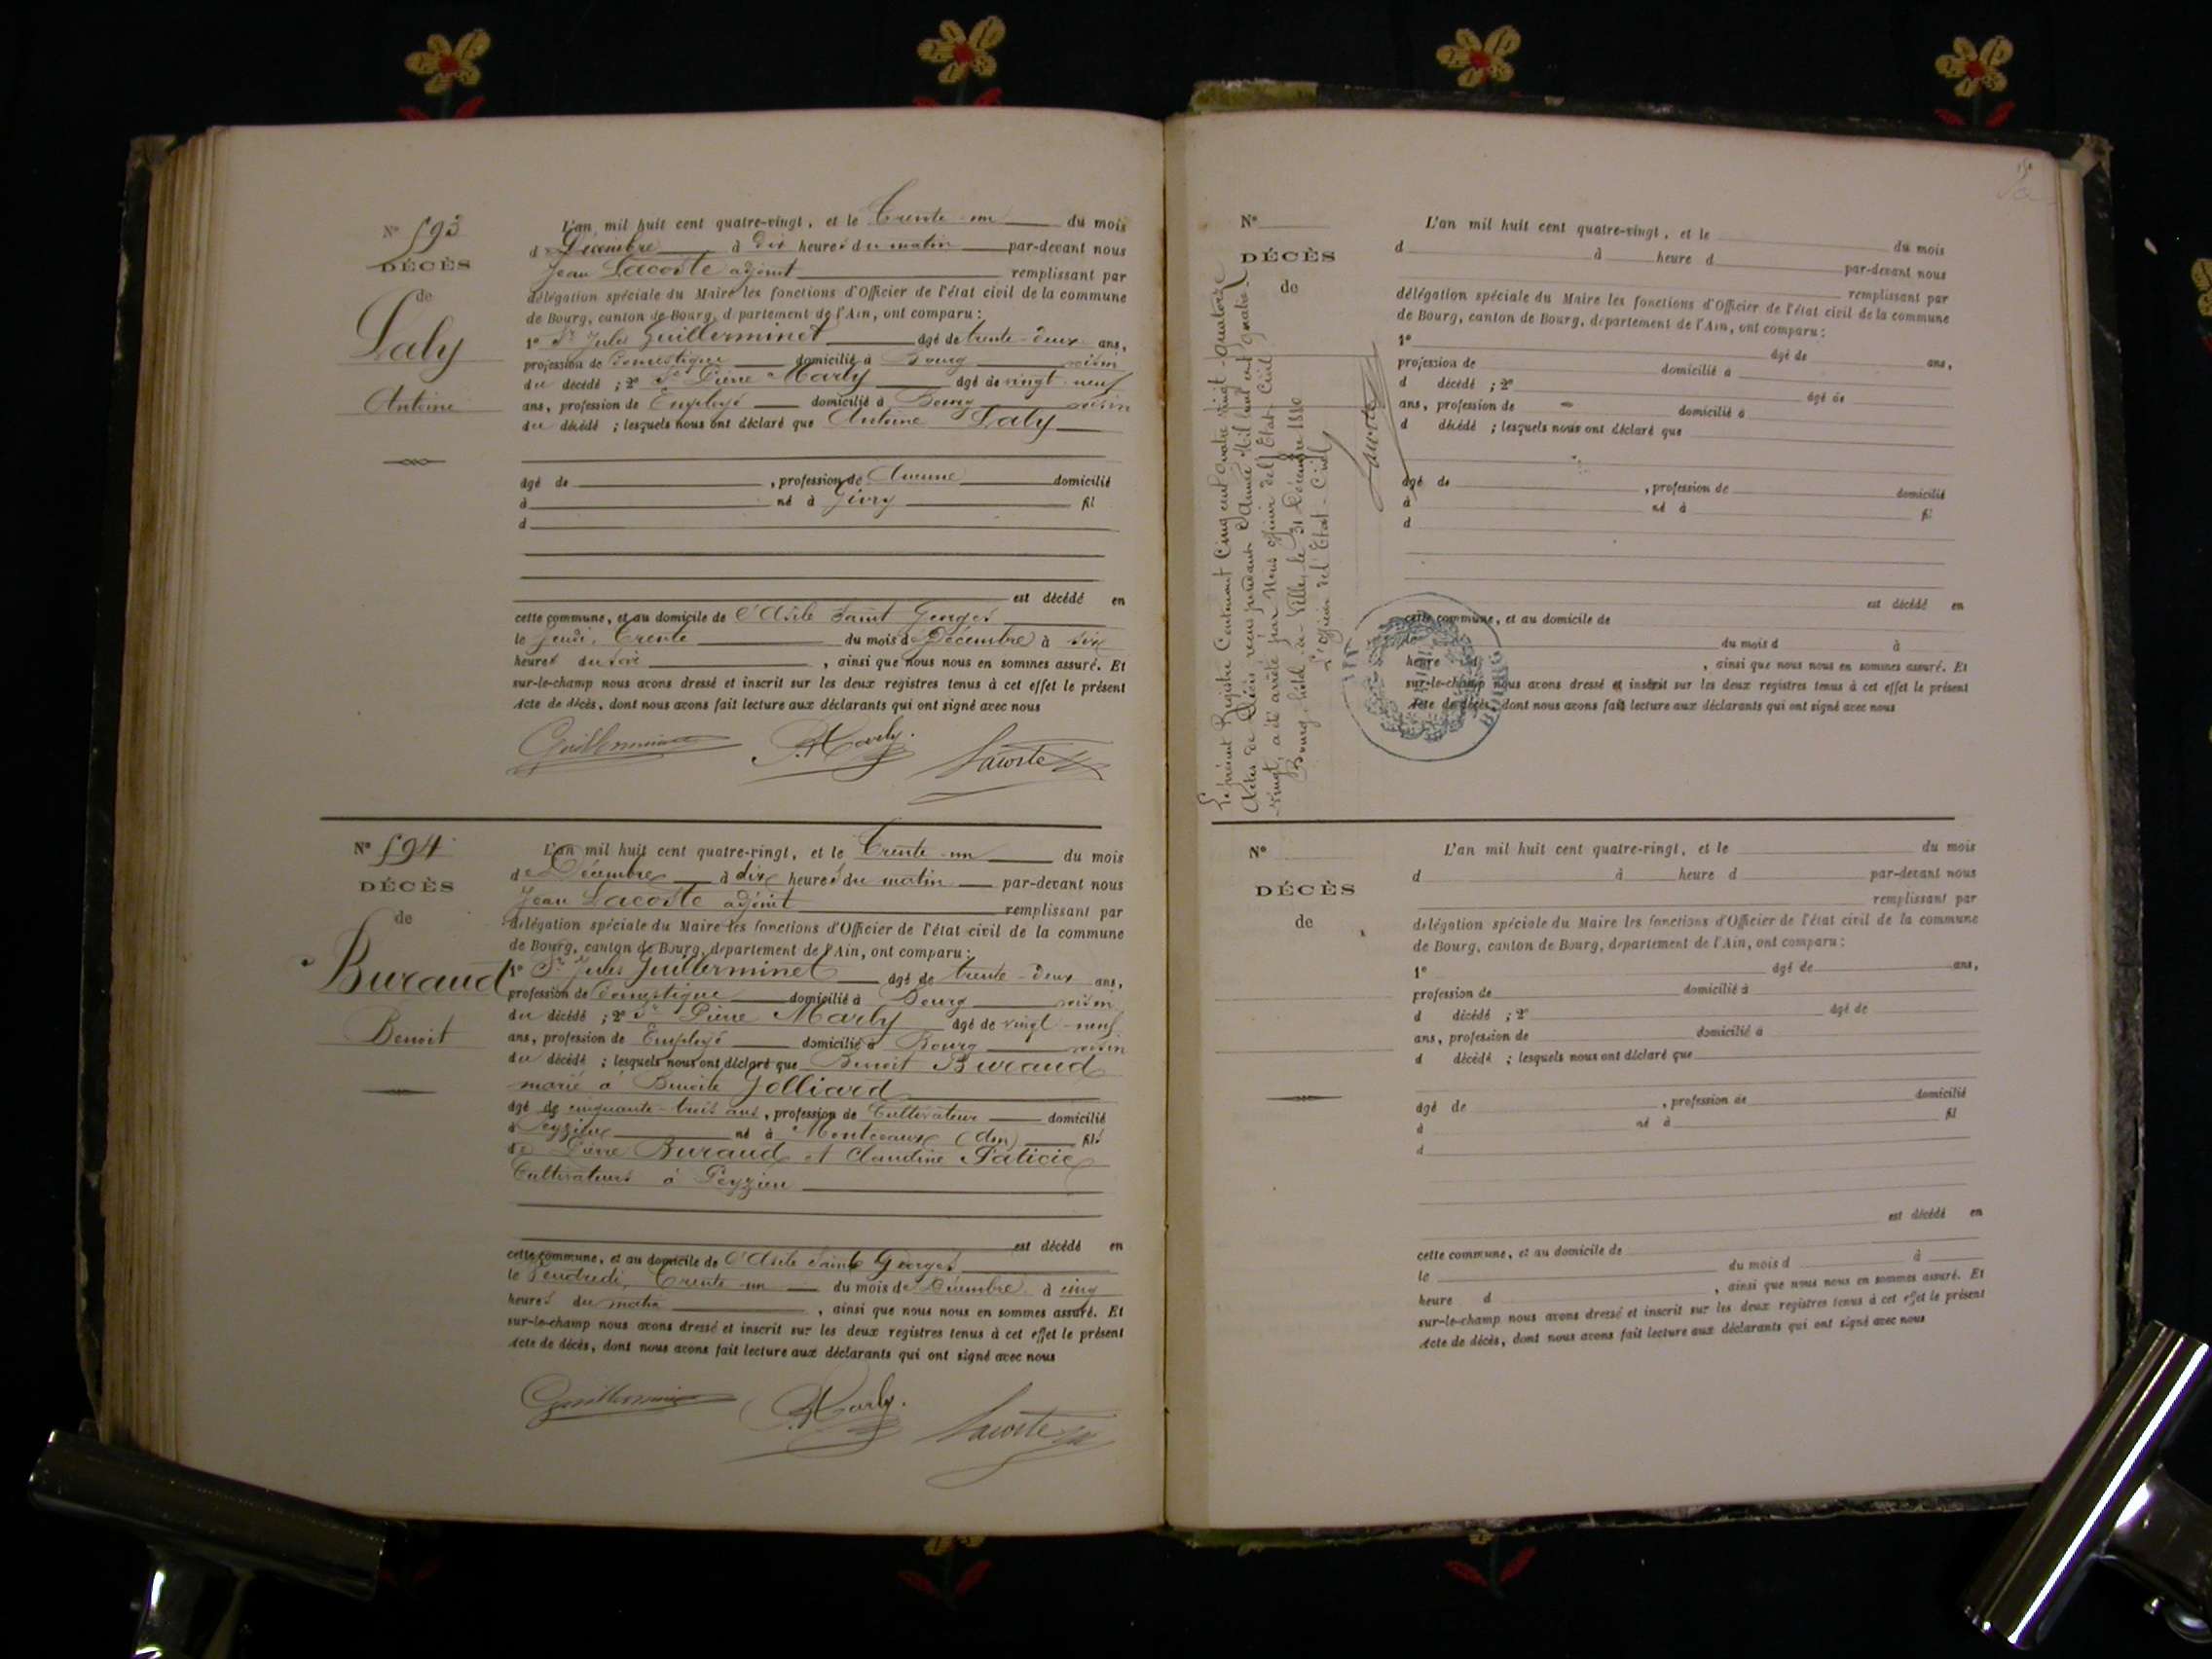 N° 593
DÉCÈS
de
Laly
Antoine
L'an mil huit cent quatre-vingt, et le Trente-un du mois
de Décembre à dix heures du matin par-devant nous
Jean Lacoste adjoint remplissant par
délégation spéciale du Maire les fonctions d'Officier de l'état civil de la commune
de Bourg, canton de Bourg, département de l'Ain, ont comparu :
1° Sr Jules Guillerminet âgé de trente-deux ans,
profession de Domestique domicilié à Bourg voisin
du décédé ; 2° Sr Pierre Marly âgé de vingt-neuf
ans, profession de Employé domicilié à Bourg voisin
du décédé ; lesquels nous ont déclaré que Antoine Laly
âgé de , profession de Aucune domicilié
à né à Givry fil
d
est décédé en
cette commune, et au domicile de l'Asile Saint Georges
le Jeudi, Trente du mois de Décembre à six
heures du soir , ainsi que nous nous en sommes assuré. Et
sur-le-champ nous avons dressé et inscrit sur les deux registres tenus à cet effet le présent
Acte de décès, dont nous avons fait lecture aux déclarants qui ont signé avec nous
Guillerminet P. Marly. Lacoste
N° 594
DÉCÈS
de
Buraud
Benoit
L'an mil huit cent quatre-vingt, et le Trente-un du mois
de Décembre à dix heures du matin par-devant nous
Jean Lacoste adjoint remplissant par
délégation spéciale du Maire les fonctions d'Officier de l'état civil de la commune
de Bourg, canton de Bourg, département de l'Ain, ont comparu :
1° Sr Jules Guillerminet âgé de trente-deux ans,
profession de Domestique domicilié à Bourg voisin
du décédé ; 2° Sr Pierre Marly âgé de vingt-neuf
ans, profession de Employé domicilié à Bourg voisin
du décédé ; lesquels nous ont déclaré que Benoit Buraud
marié à Benoite Jolliard
âgé de cinquante-trois ans, profession de Cultivateur domicilié
à Peyzieu né à Montceaux (Ain) fils
de Pierre Buraud et Claudine Paticie
Cultivateurs à Peyzieu
est décédé en
cette commune, et au domicile de l'Asile Saint Georges
le Vendredi, Trente-un du mois de Décembre à cinq
heures du matin , ainsi que nous nous en sommes assuré. Et
sur-le-champ nous avons dressé et inscrit sur les deux registres tenus à cet effet le présent
Acte de décès, dont nous avons fait lecture aux déclarants qui ont signé avec nous
Guillerminet P. Marly. Lacoste
Le présent Registre Contenant Cinq cent quatre vingt-quatorze
Actes de Décès reçus pendant l'année Mil huit cent quatre-
-vingt, a été arrêté par Nous officier de l'Etat-Civil
Bourg, hôtel-de-Ville, le 31 Décembre 1880
L'officier de l'Etat-Civil
Lacoste
N°
DÉCÈS
de
L'an mil huit cent quatre-vingt, et le du mois
d à heure d par-devant nous
remplissant par
délégation spéciale du Maire les fonctions d'Officier de l'état civil de la commune
de Bourg, canton de Bourg, département de l'Ain, ont comparu :
1° âgé de ans,
profession de domicilié à
d décédé ; 2° âgé de
ans, profession de domicilié à
d décédé ; lesquels nous ont déclaré que
âgé de , profession de domicilié
à né à fil
d
est décédé en
cette commune, et au domicile de
le du mois d à
heure d , ainsi que nous nous en sommes assuré. Et
sur-le-champ nous avons dressé et inscrit sur les deux registres tenus à cet effet le présent
Acte de décès, dont nous avons fait lecture aux déclarants qui ont signé avec nous
N°
DÉCÈS
de
L'an mil huit cent quatre-vingt, et le du mois
d à heure d par-devant nous
remplissant par
délégation spéciale du Maire les fonctions d'Officier de l'état civil de la commune
de Bourg, canton de Bourg, département de l'Ain, ont comparu :
1° âgé de ans,
profession de domicilié à
d décédé ; 2° âgé de
ans, profession de domicilié à
d décédé ; lesquels nous ont déclaré que
âgé de , profession de domicilié
à né à fil
d
est décédé en
cette commune, et au domicile de
le du mois d à
heure d , ainsi que nous nous en sommes assuré. Et
sur-le-champ nous avons dressé et inscrit sur les deux registres tenus à cet effet le présent
Acte de décès, dont nous avons fait lecture aux déclarants qui ont signé avec nous